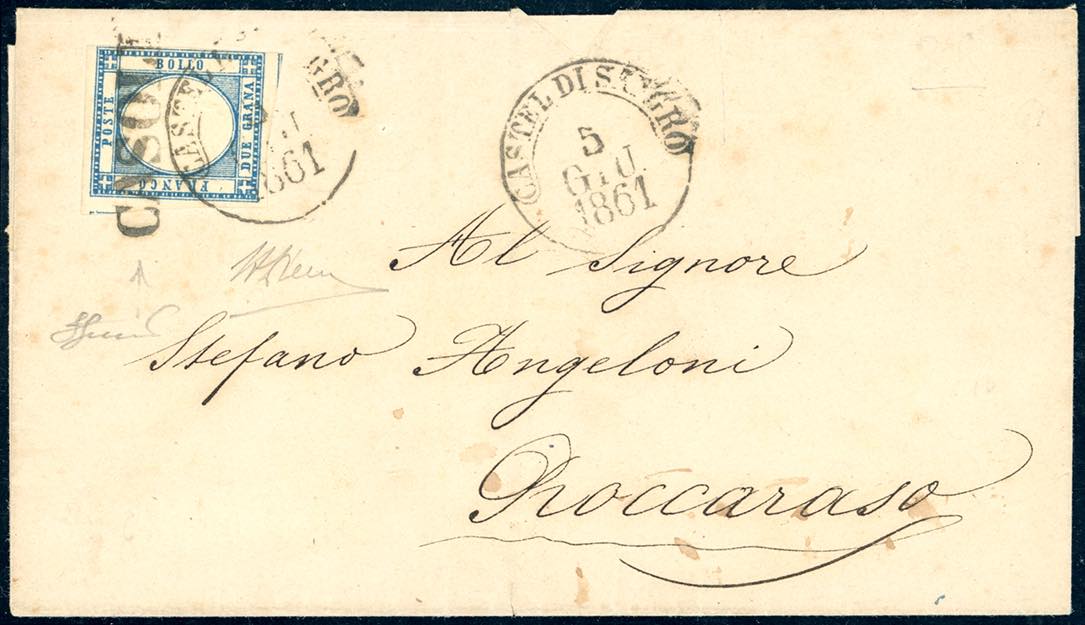 BOLLO
POSTE
DUE GRANA
FRANCO
CASTEL DI SANGRO
5
GIU
1861
Al Signore
Stefano Angeloni
Roccaraso